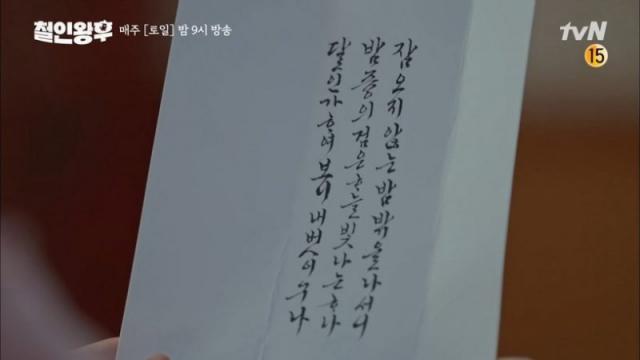 철인왕후 매주 [토일] 밤 9시 방송
tvN
15
잠오지않는밤밖을나서니
밤중의검은ᄒᆞ늘빛나는ᄒᆞ나
달인가ᄒᆞ여보니내벗이구나